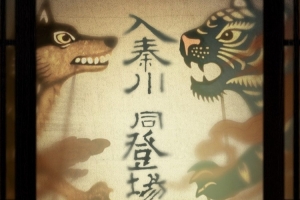 入秦川
同登場